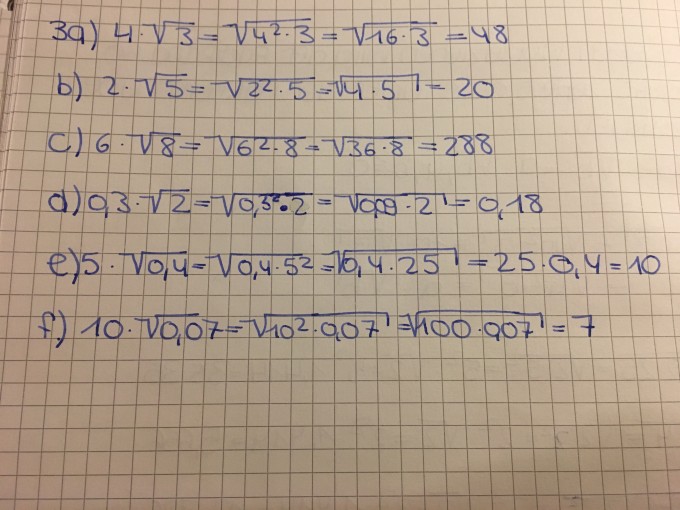 3a) 4·√3 = √4²·3 = √16·3 = 48
b) 2·√5 = √2²·5 = √4·5 = 20
c) 6·√8 = √6²·8 = √36·8 = 288
d) 0,3·√2 = √0,3²·2 = √0,09·2 = 0,18
e) 5·√0,4 = √0,4·5² = √0,4·25 = 25·0,4 = 10
f.) 10·√0,07 = √10²·0,07 = √100·0,07 = 7